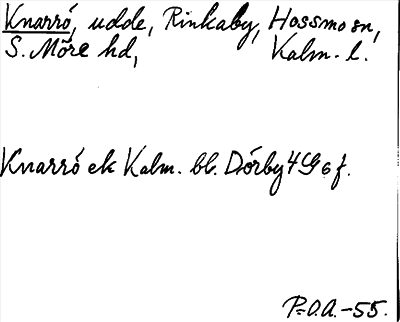 Knarró, udde, Rinkaby, Hossmo sn,
S. Möre hd, Kalm. l.
Knarró ek Kalm. bl. Dörby 4G6f.
P.O.A.-55.